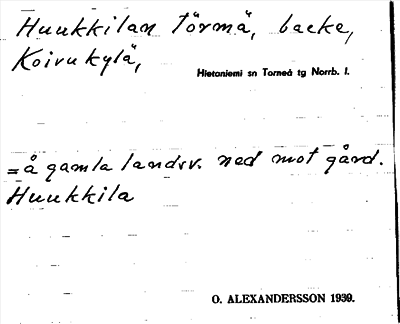 Huukkilan törmä, backe,
Koivukylä,
Hietaniemi sn Torneå tg Norrb. l.
= å gamla landsv. ned mot gård.
Huukkila
O. ALEXANDERSSON 1939.